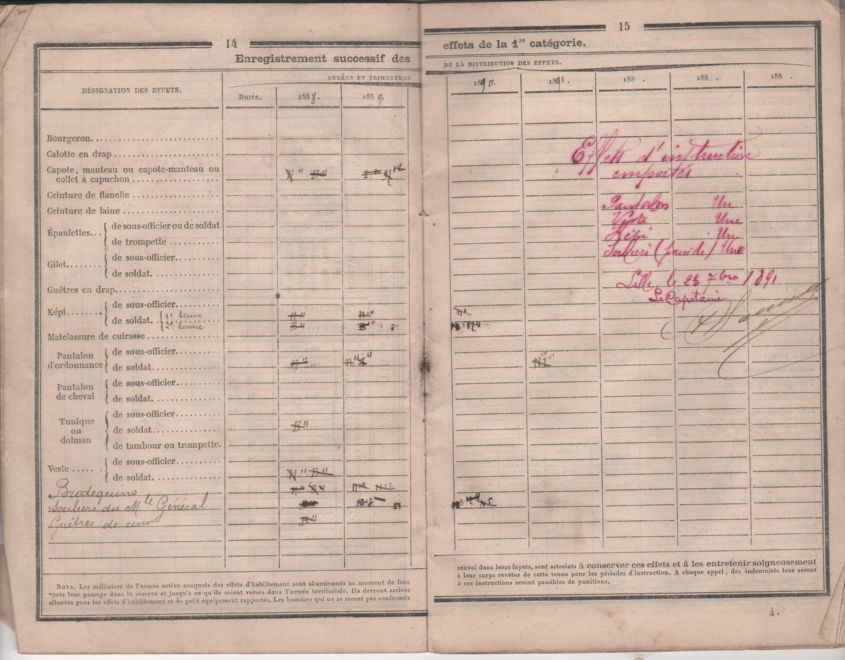 14
Enregistrement successif des
ANNÉES ET TRIMESTRES
DÉSIGNATION DES EFFETS.
Durée.
1888.
188
Bourgeron
Calotte en drap
Capote, manteau ou capote-manteau ou
collet à capuchon
Ceinture de flanelle
Ceinture de laine
Épaulettes
de sous-officier ou de soldat
de trompette
Gilet
de sous-officier
de soldat.
Guêtres en drap
Képi
de sous-officier
de soldat. 1re tenue
2e tenue
Matelassure de cuirasse
Pantalon
d'ordonnance
de sous-officier
de soldat
Pantalon
de cheval
de sous-officier
de soldat.
Tunique
ou
dolman
de sous-officier
de soldat
de tambour ou trompette.
Veste
de sous-officier
de soldat.
Brodequins
Souliers du Mle Général
Guêtres de cuir
NOTA. Les militaires de l'armée active auxquels des effets d'habillement sont abandonnés au moment de leur
après leur passage dans la réserve et jusqu'à ce qu'ils soient versés dans l'armée territoriale. Ils devront arriver
allouées pour les effets d'habillement et de petit équipement rapportés. Les hommes qui ne se seront pas conformés
15
effets de la 1re catégorie.
DE LA DISTRIBUTION DES EFFETS.
1890.
1891.
188 .
188 .
188 .
Effets d'instruction
emportés
Pantalon Un
Veste Une
Képi Un
Souliers (paire de) Une
Lille, le 23 7bre 1891
Le Capitaine
renvoi dans leurs foyers, sont astreints à conserver ces effets et à les entretenir soigneusement
à leur corps revêtus de cette tenue pour les périodes d'instruction. A chaque appel, des indemnités leur seront
à ces instructions seront passibles de punitions.
4.